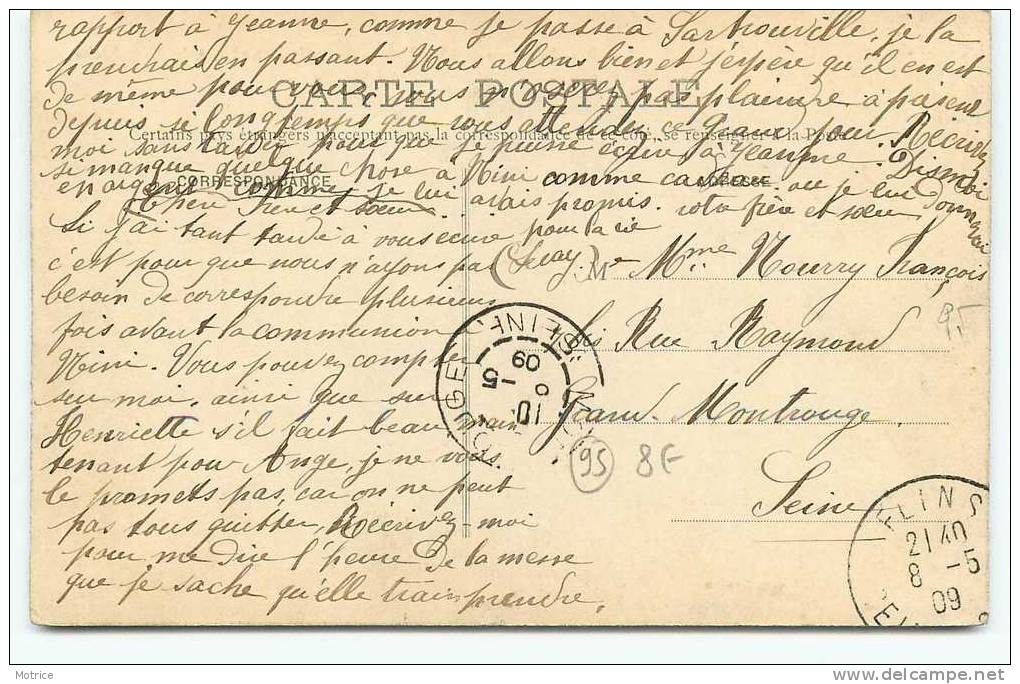 rapport à Jeanne, comme je passe à Sartrouville, je la
prendrais en passant. Nous allons bien et j'espère qu'il en est
de même pour vous, vous n'avez pas plaindre à présent
CARTE POSTALE
depuis si longtemps que vous attendez ce Grand jour. Récrivez
Certains pays étrangers n'acceptent pas la correspondance de ce côté, se renseigner à la Poste
moi sans tarder pour que je puisse écrire à Jeanne. Dismoi
si manque quelque chose à Nini comme cadeau ou je lui donnerai
en argent comme je lui avais promis. votre frère et sœur
pour la vie
CORRESPONDANCE
ADRESSE
Cher Frère et sœur
Si j'ai tant tardé à vous écrire
c'est pour que nous n'ayons pas
besoin de correspondre plusieurs
fois avant la communion
Nini. Vous pouvez compter
sur moi. ainsi que sur
Henriette s'il fait beau main
tenant pour Ange, je ne vous
le promets pas, car on ne peut
pas tous quitter, Récrivez-moi
pour me dire l'heure de la messe
que je sache qu'elle train prendre.
M Mme Nourry François
bis Rue Raymond
Grand-Montrouge
Seine
95 8F
10 5 09
SEINE
FLINS
21 40
8 -5
09
Motrice
delcampe.net